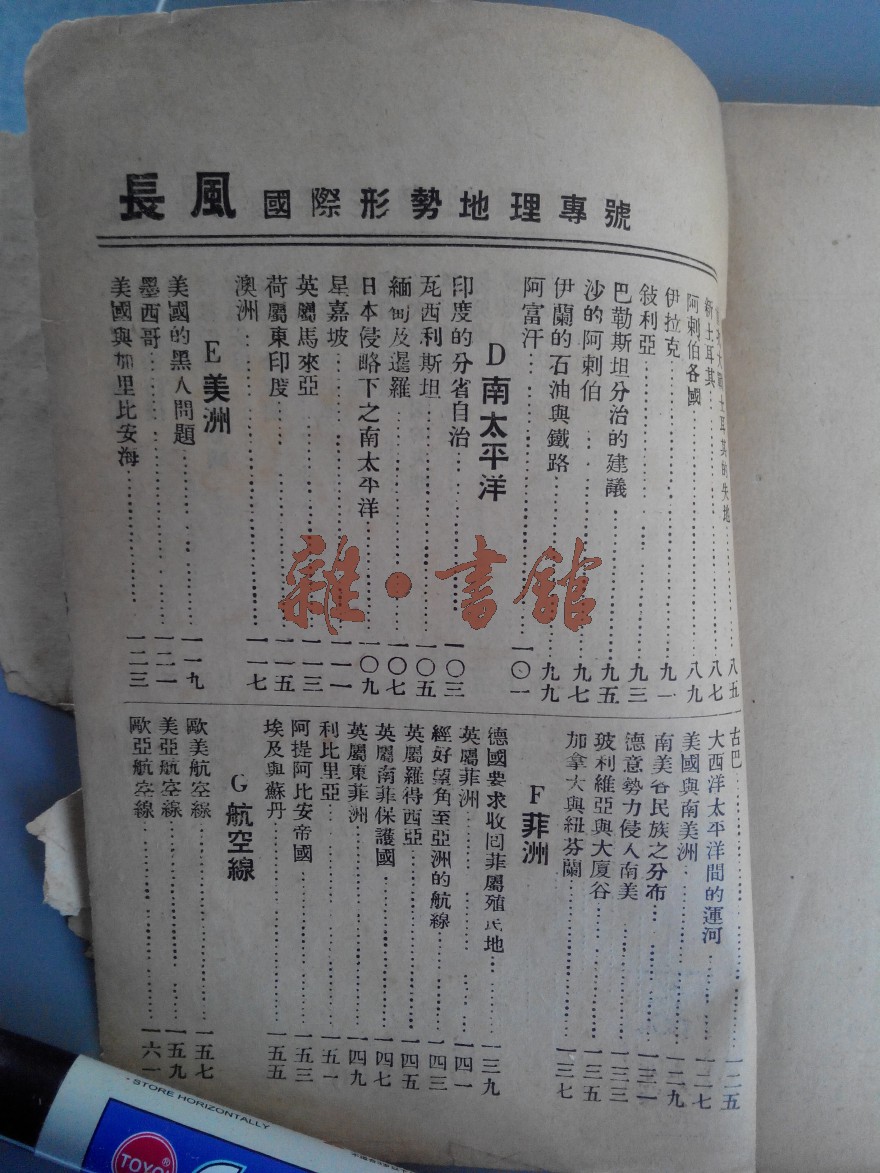 長風 國際形勢地理專號
土耳其的失地……八五
新土耳其……八七
阿剌伯各國……八九
伊拉克……九一
敍利亞……九三
巴勒斯坦分治的建議……九五
沙的阿剌伯……九七
伊蘭的石油與鐵路……九九
阿富汗……一〇一
D 南太平洋
印度的分省自治……一〇三
瓦西利斯坦……一〇五
緬甸及暹羅……一〇七
日本侵略下之南太平洋……一〇九
星嘉坡……一一一
英屬馬來亞……一一三
荷屬東印度……一一五
澳洲……一一七
E 美洲
美國的黑人問題……一一九
墨西哥……一二一
美國與加里比安海……一二三
古巴……一二五
大西洋太平洋間的運河……一二七
美國與南美洲……一二九
南美各民族之分布……一三一
德意勢力侵入南美……一三三
玻利維亞與大廈谷……一三五
加拿大與紐芬蘭……一三七
F 菲洲
德國要求收囘菲屬殖民地……一三九
英屬菲洲……一四一
經好望角至亞洲的航線……一四三
英屬羅得西亞……一四五
英屬南菲保護國……一四七
英屬東菲洲……一四九
利比里亞……一五一
阿提阿比安帝國……一五三
埃及與蘇丹……一五五
G 航空線
歐美航空線……一五七
美亞航空線……一五九
歐亞航空線……一六一
雜·書館
STORE HORIZONTALLY
TOYO